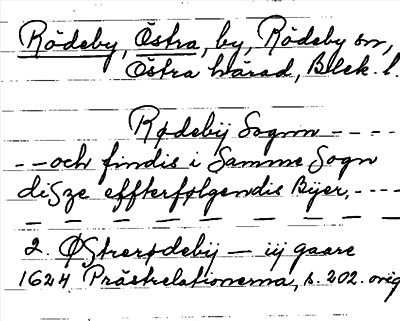 Rödeby, Östra, by, Rödeby sn,
Östra härad, Blek. l.
Rødebÿ Sognn ----
--och findis i Samme Sogn
disze effterfølgendis Bÿer,----
2. Østrerødebÿ — iij gaare
1624 Prästrelationerna, s. 202. orig